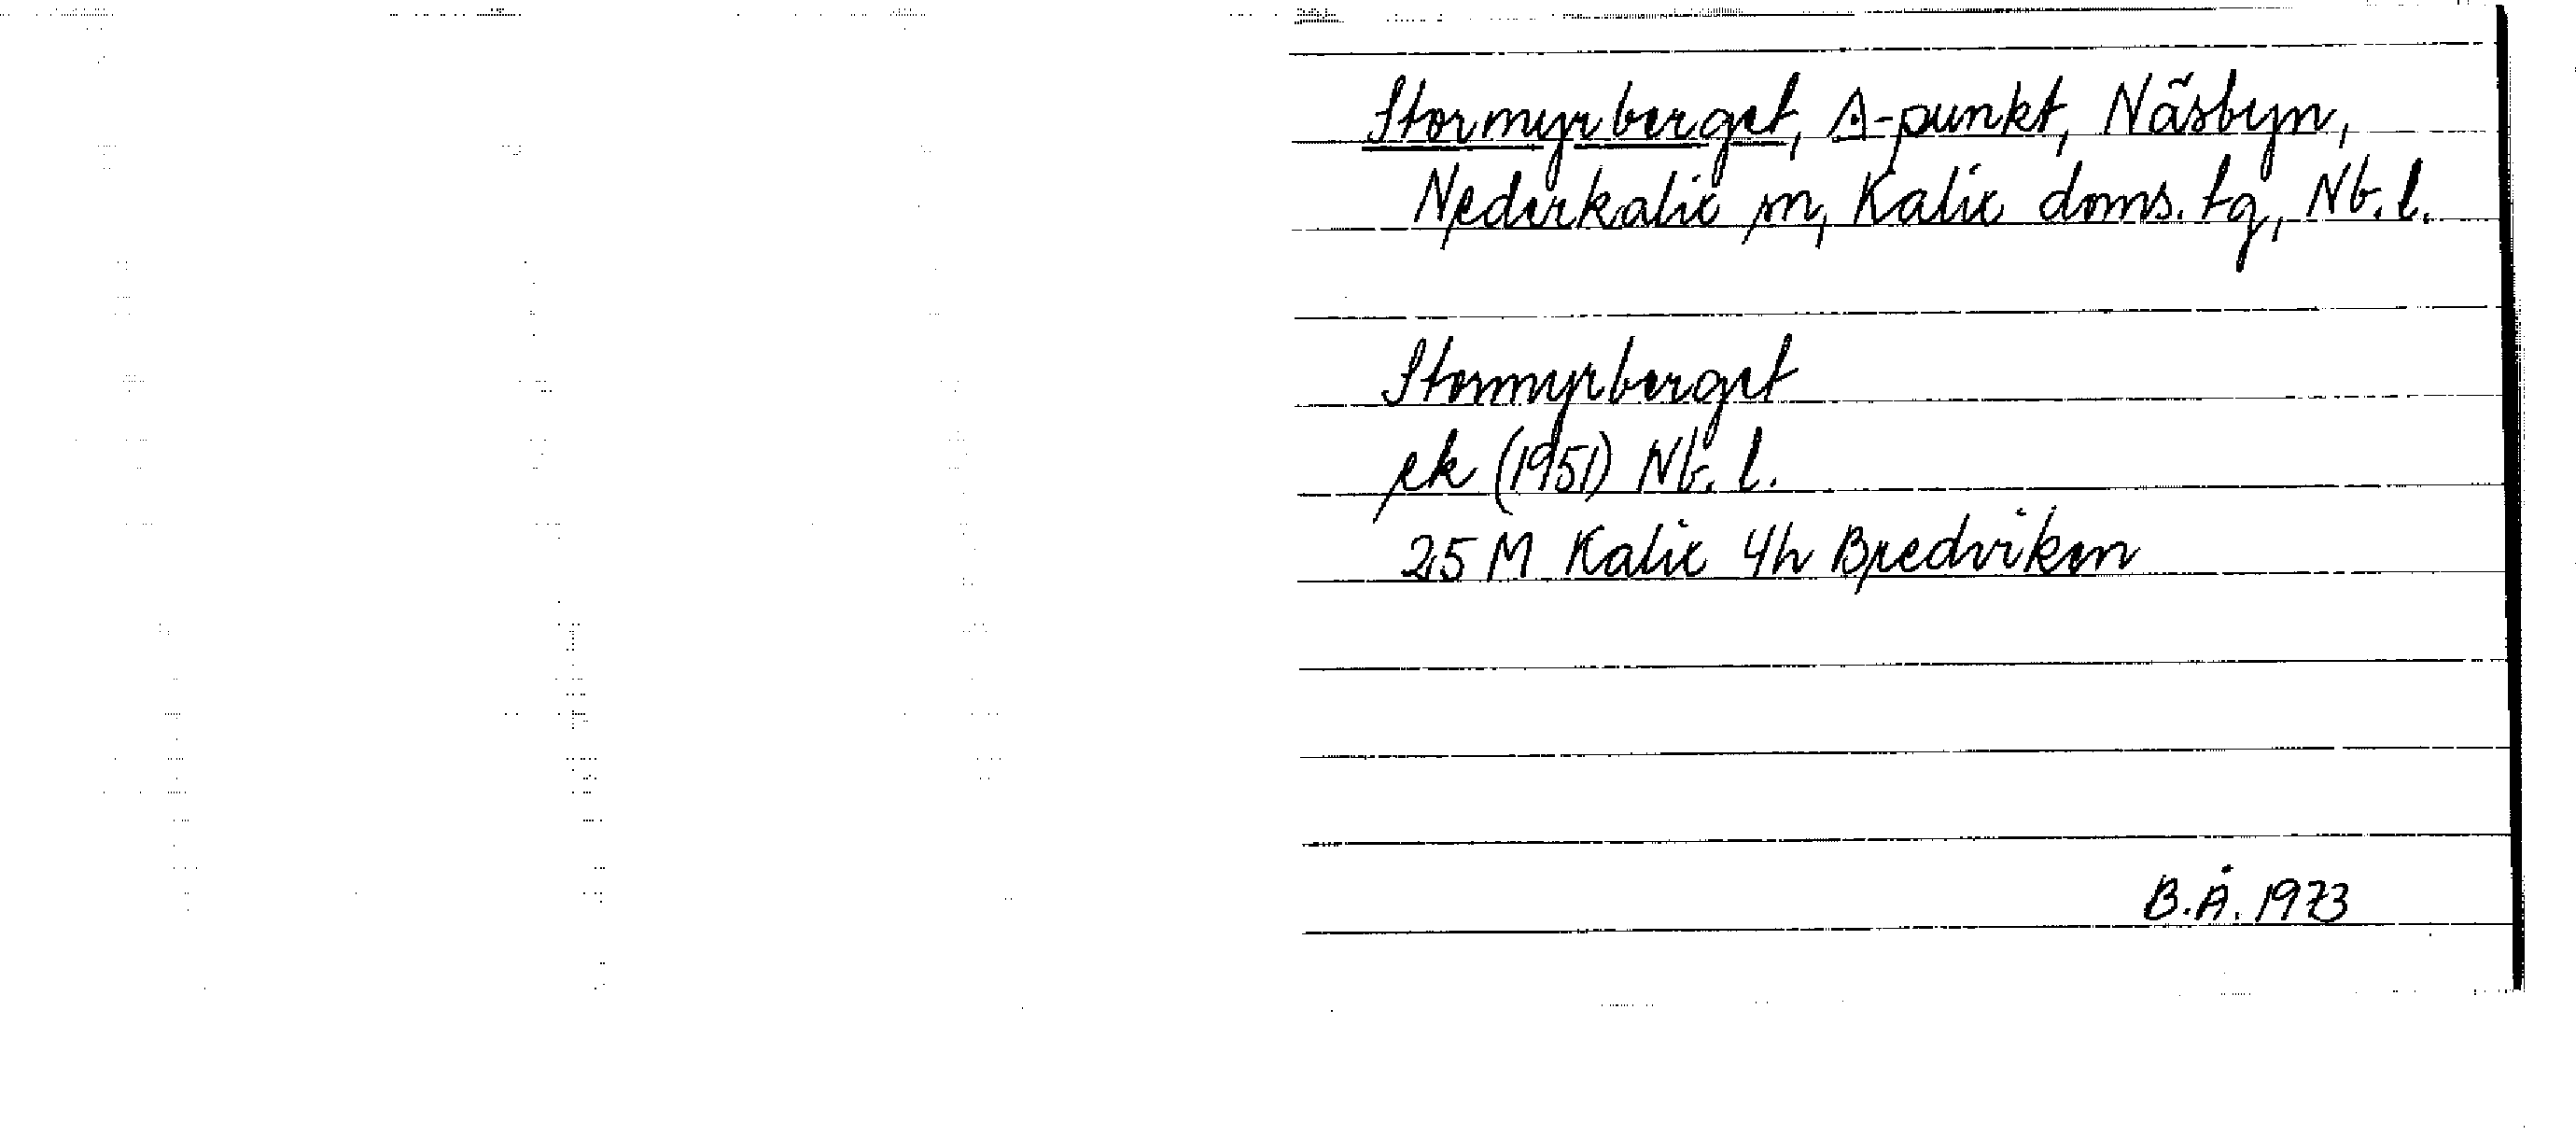 Stormyrberget, ◬-punkt, Näsbyn,
Nederkalix sn, Kalix doms. tg, Nb. l.
Stormyrberget
ek (1951) Nb. l.
25 M Kalix 4h Bredviken
B.Å. 1973